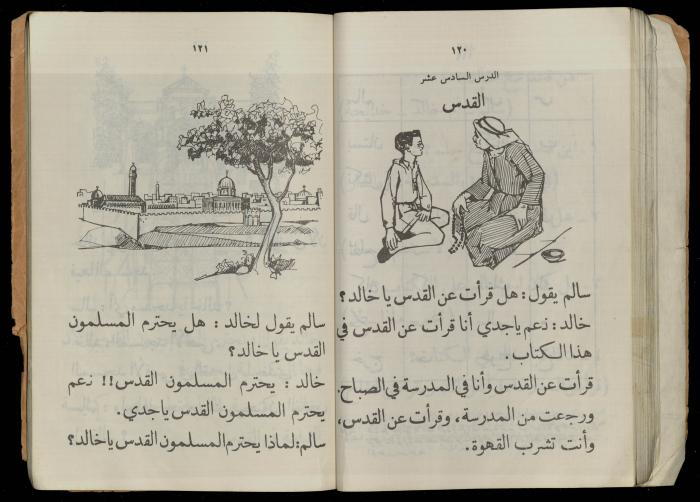 ١٢٠
الدرس السادس عشر
القدس
سالم يقول : هل قرأت عن القدس يا خالد؟
خالد : نعم ياجدي أنا قرأت عن القدس في
هذا الكتاب .
قرأت عن القدس وأنا في المدرسة في الصباح.
ورجعت من المدرسة، وقرأت عن القدس،
وأنت تشرب القهوة.
١٢١
سالم يقول لخالد : هل يحترم المسلمون
القدس يا خالد؟
خالد : يحترم المسلمون القدس!! نعم
يحترم المسلمون القدس ياجدي.
سالم:لماذا يحترم المسلمون القدس ياخالد؟